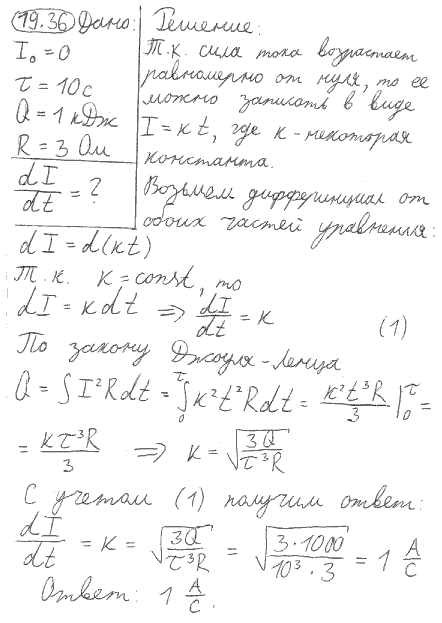 19.36 Дано: Решение:
I₀ = 0
τ = 10 с
Q = 1 кДж
R = 3 Ом
dI/dt = ?
Т.к. сила тока возрастает
равномерно от нуля, то ее
можно записать в виде
I = кt, где к - некоторая
константа.
Возьмем дифференциал от
обоих частей уравнения:
dI = d(кt)
Т.к. к = const, то
dI = кdt => dI/dt = к (1)
По закону Джоуля-Ленца
Q = ∫I²Rdt = ∫₀^τ к²t²Rdt = к²t³R/3 |₀^τ =
= кτ³R/3 => к = √(3Q/τ³R)
С учетом (1) получим ответ:
dI/dt = к = √(3Q/τ³R) = √(3·1000/10³·3) = 1 А/с
Ответ: 1 А/с.